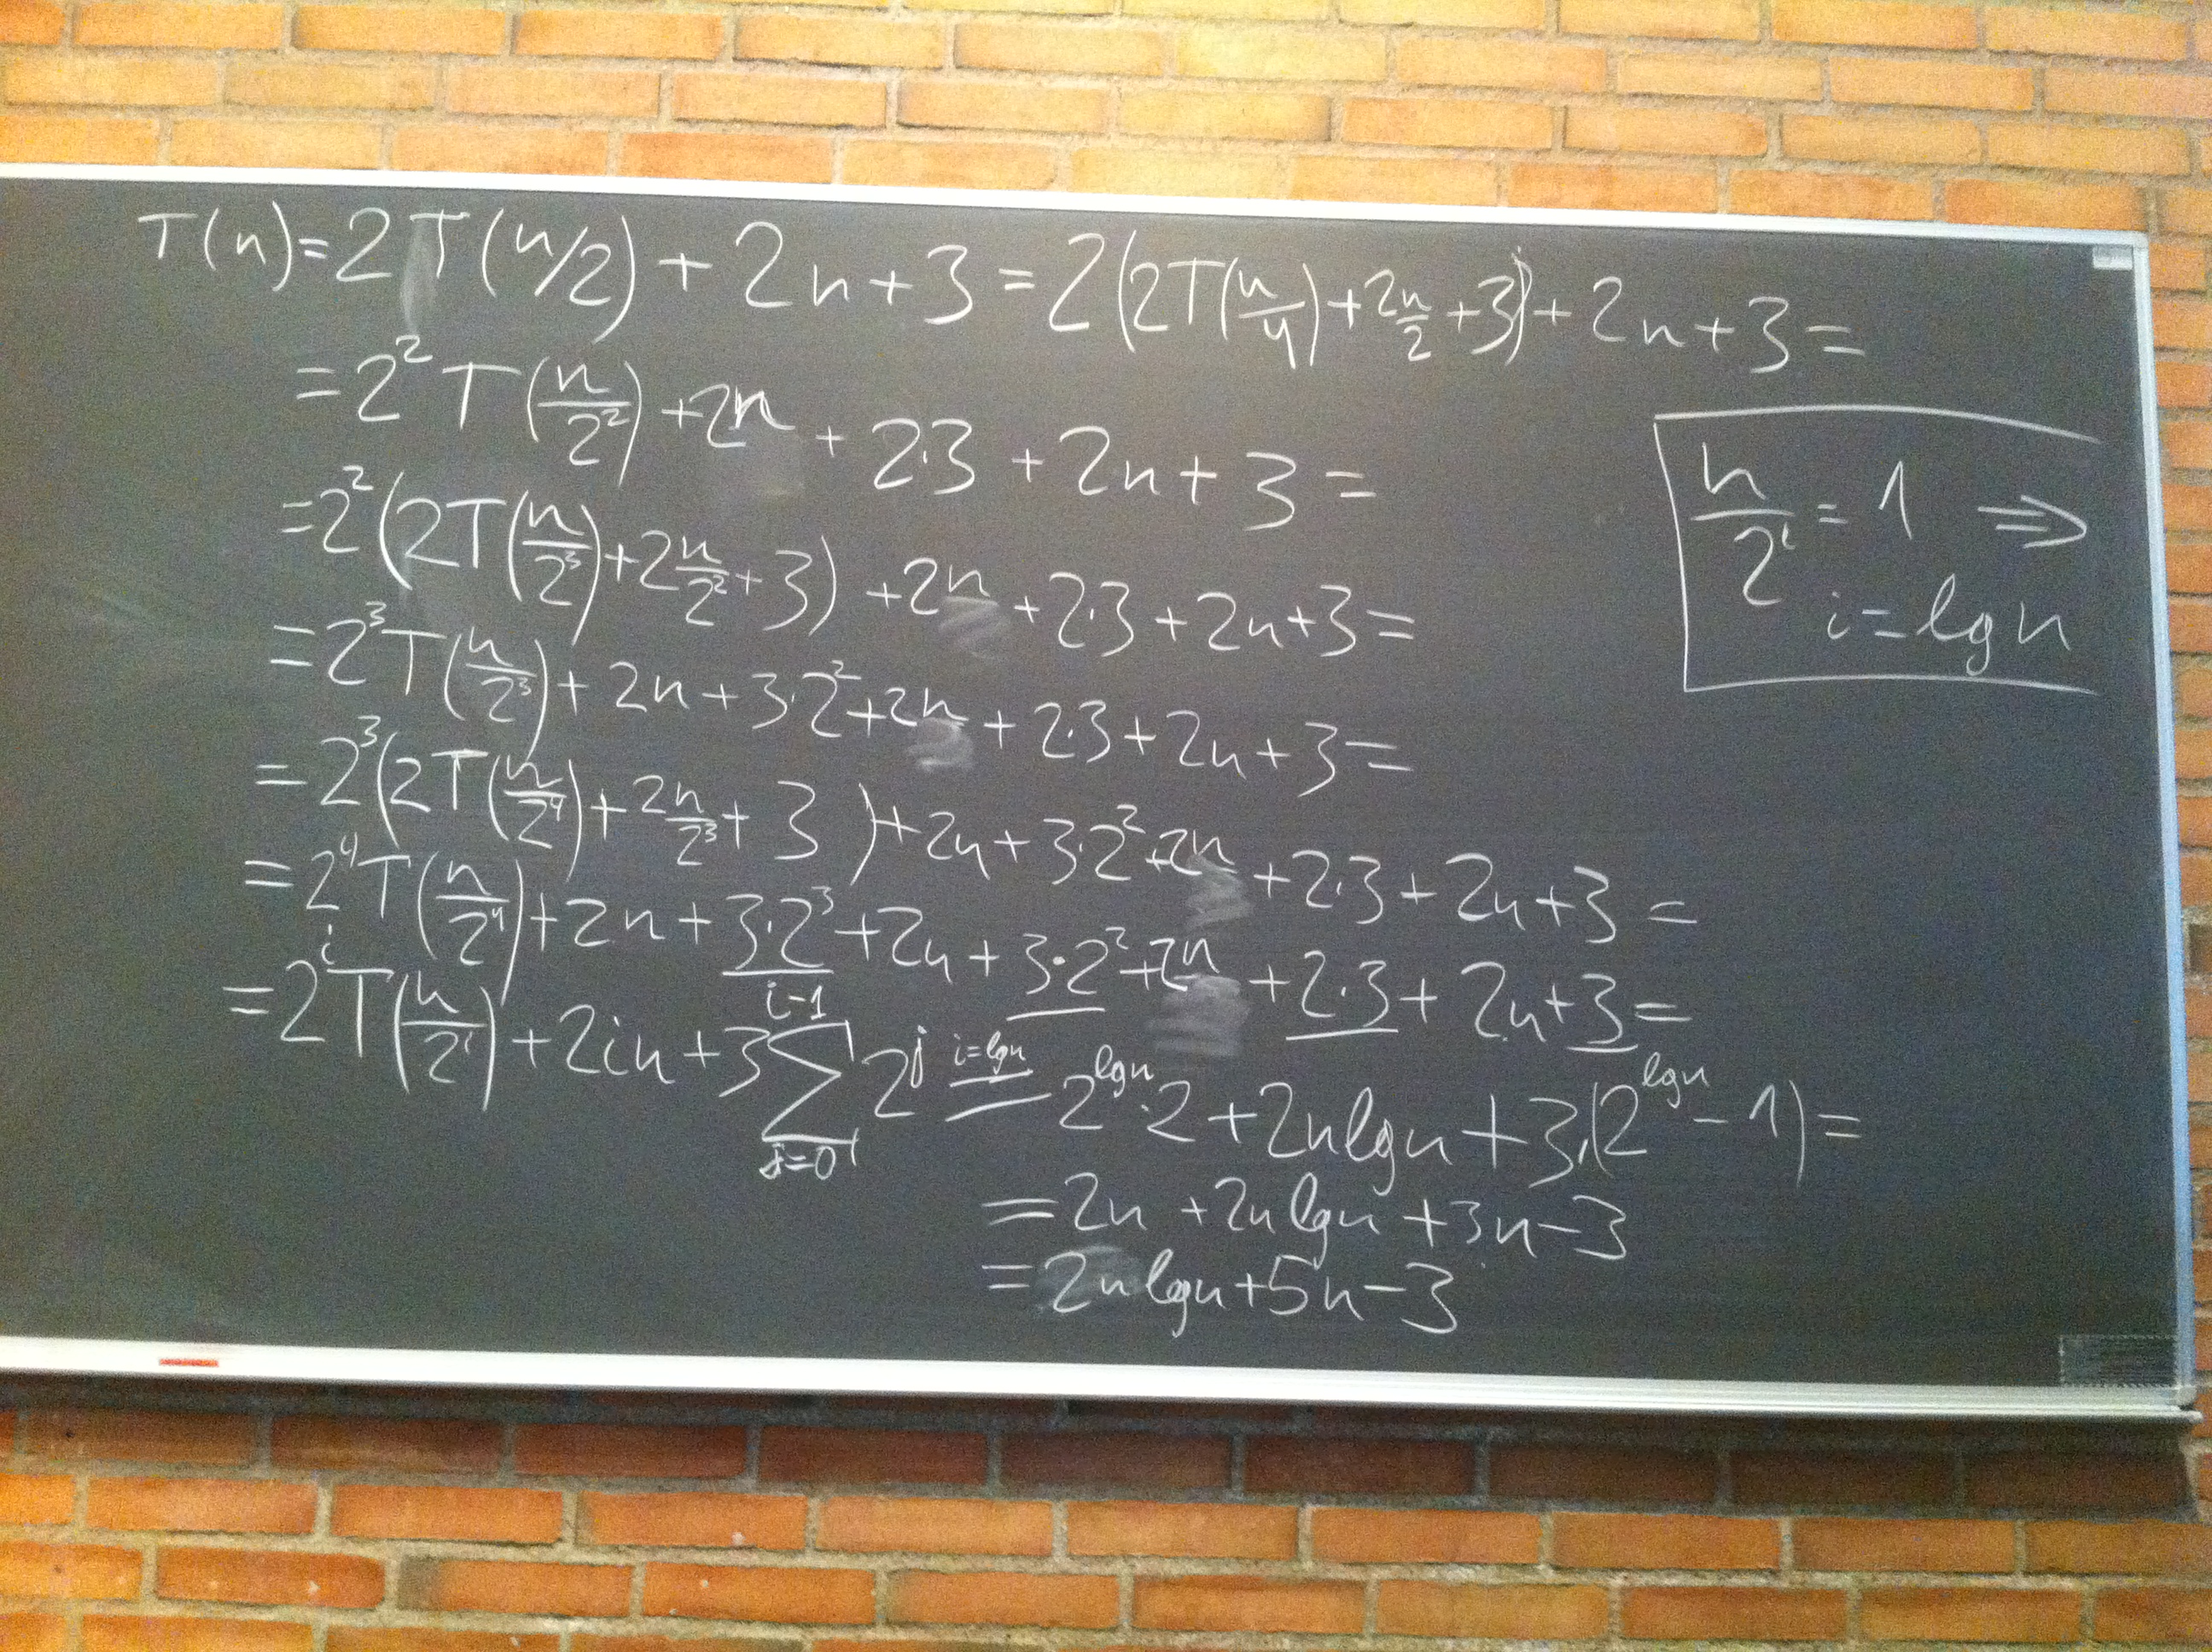 T(n)=2T(n/2)+2n+3=2(2T(n/4)+2n/2+3)+2n+3=
=2²T(n/2²)+2n+2·3+2n+3=
=2²(2T(n/2³)+2n/2²+3)+2n+2·3+2n+3=
=2³T(n/2³)+2n+3·2²+2n+2·3+2n+3=
=2³(2T(n/2⁴)+2n/2³+3)+2n+3·2²+2n+2·3+2n+3=
=2⁴T(n/2⁴)+2n+3·2³+2n+3·2²+2n+2·3+2n+3=
=2^i T(n/2^i)+2in+3 ∑_{j=0}^{i-1} 2^j =^{i=lgn} 2^{lgn}·2+2nlgn+3·(2^{lgn}-1)=
=2n+2nlgn+3n-3
=2nlgn+5n-3
n/2^i=1 ⇒
i=lgn